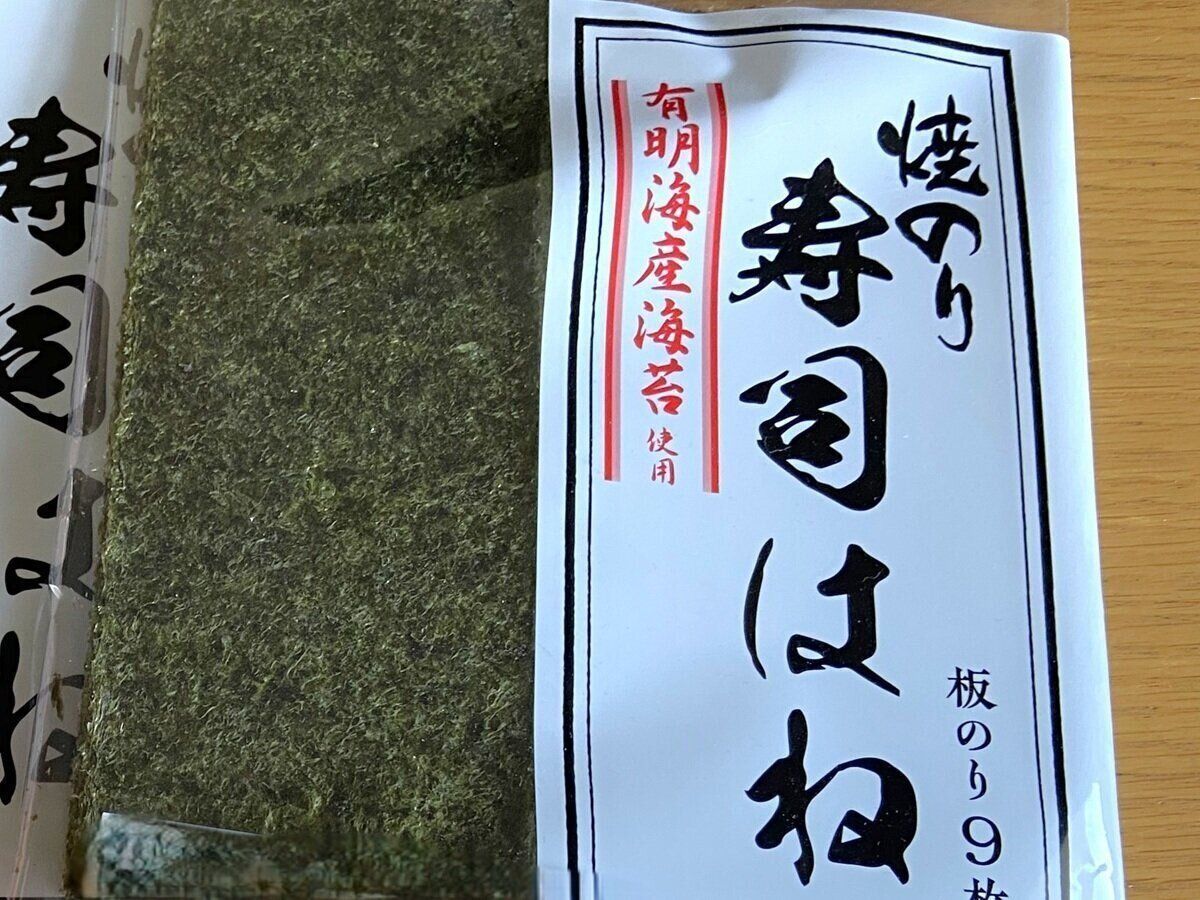 焼のり
寿司はね
有明海産海苔使用
板のり9枚
寿司はね